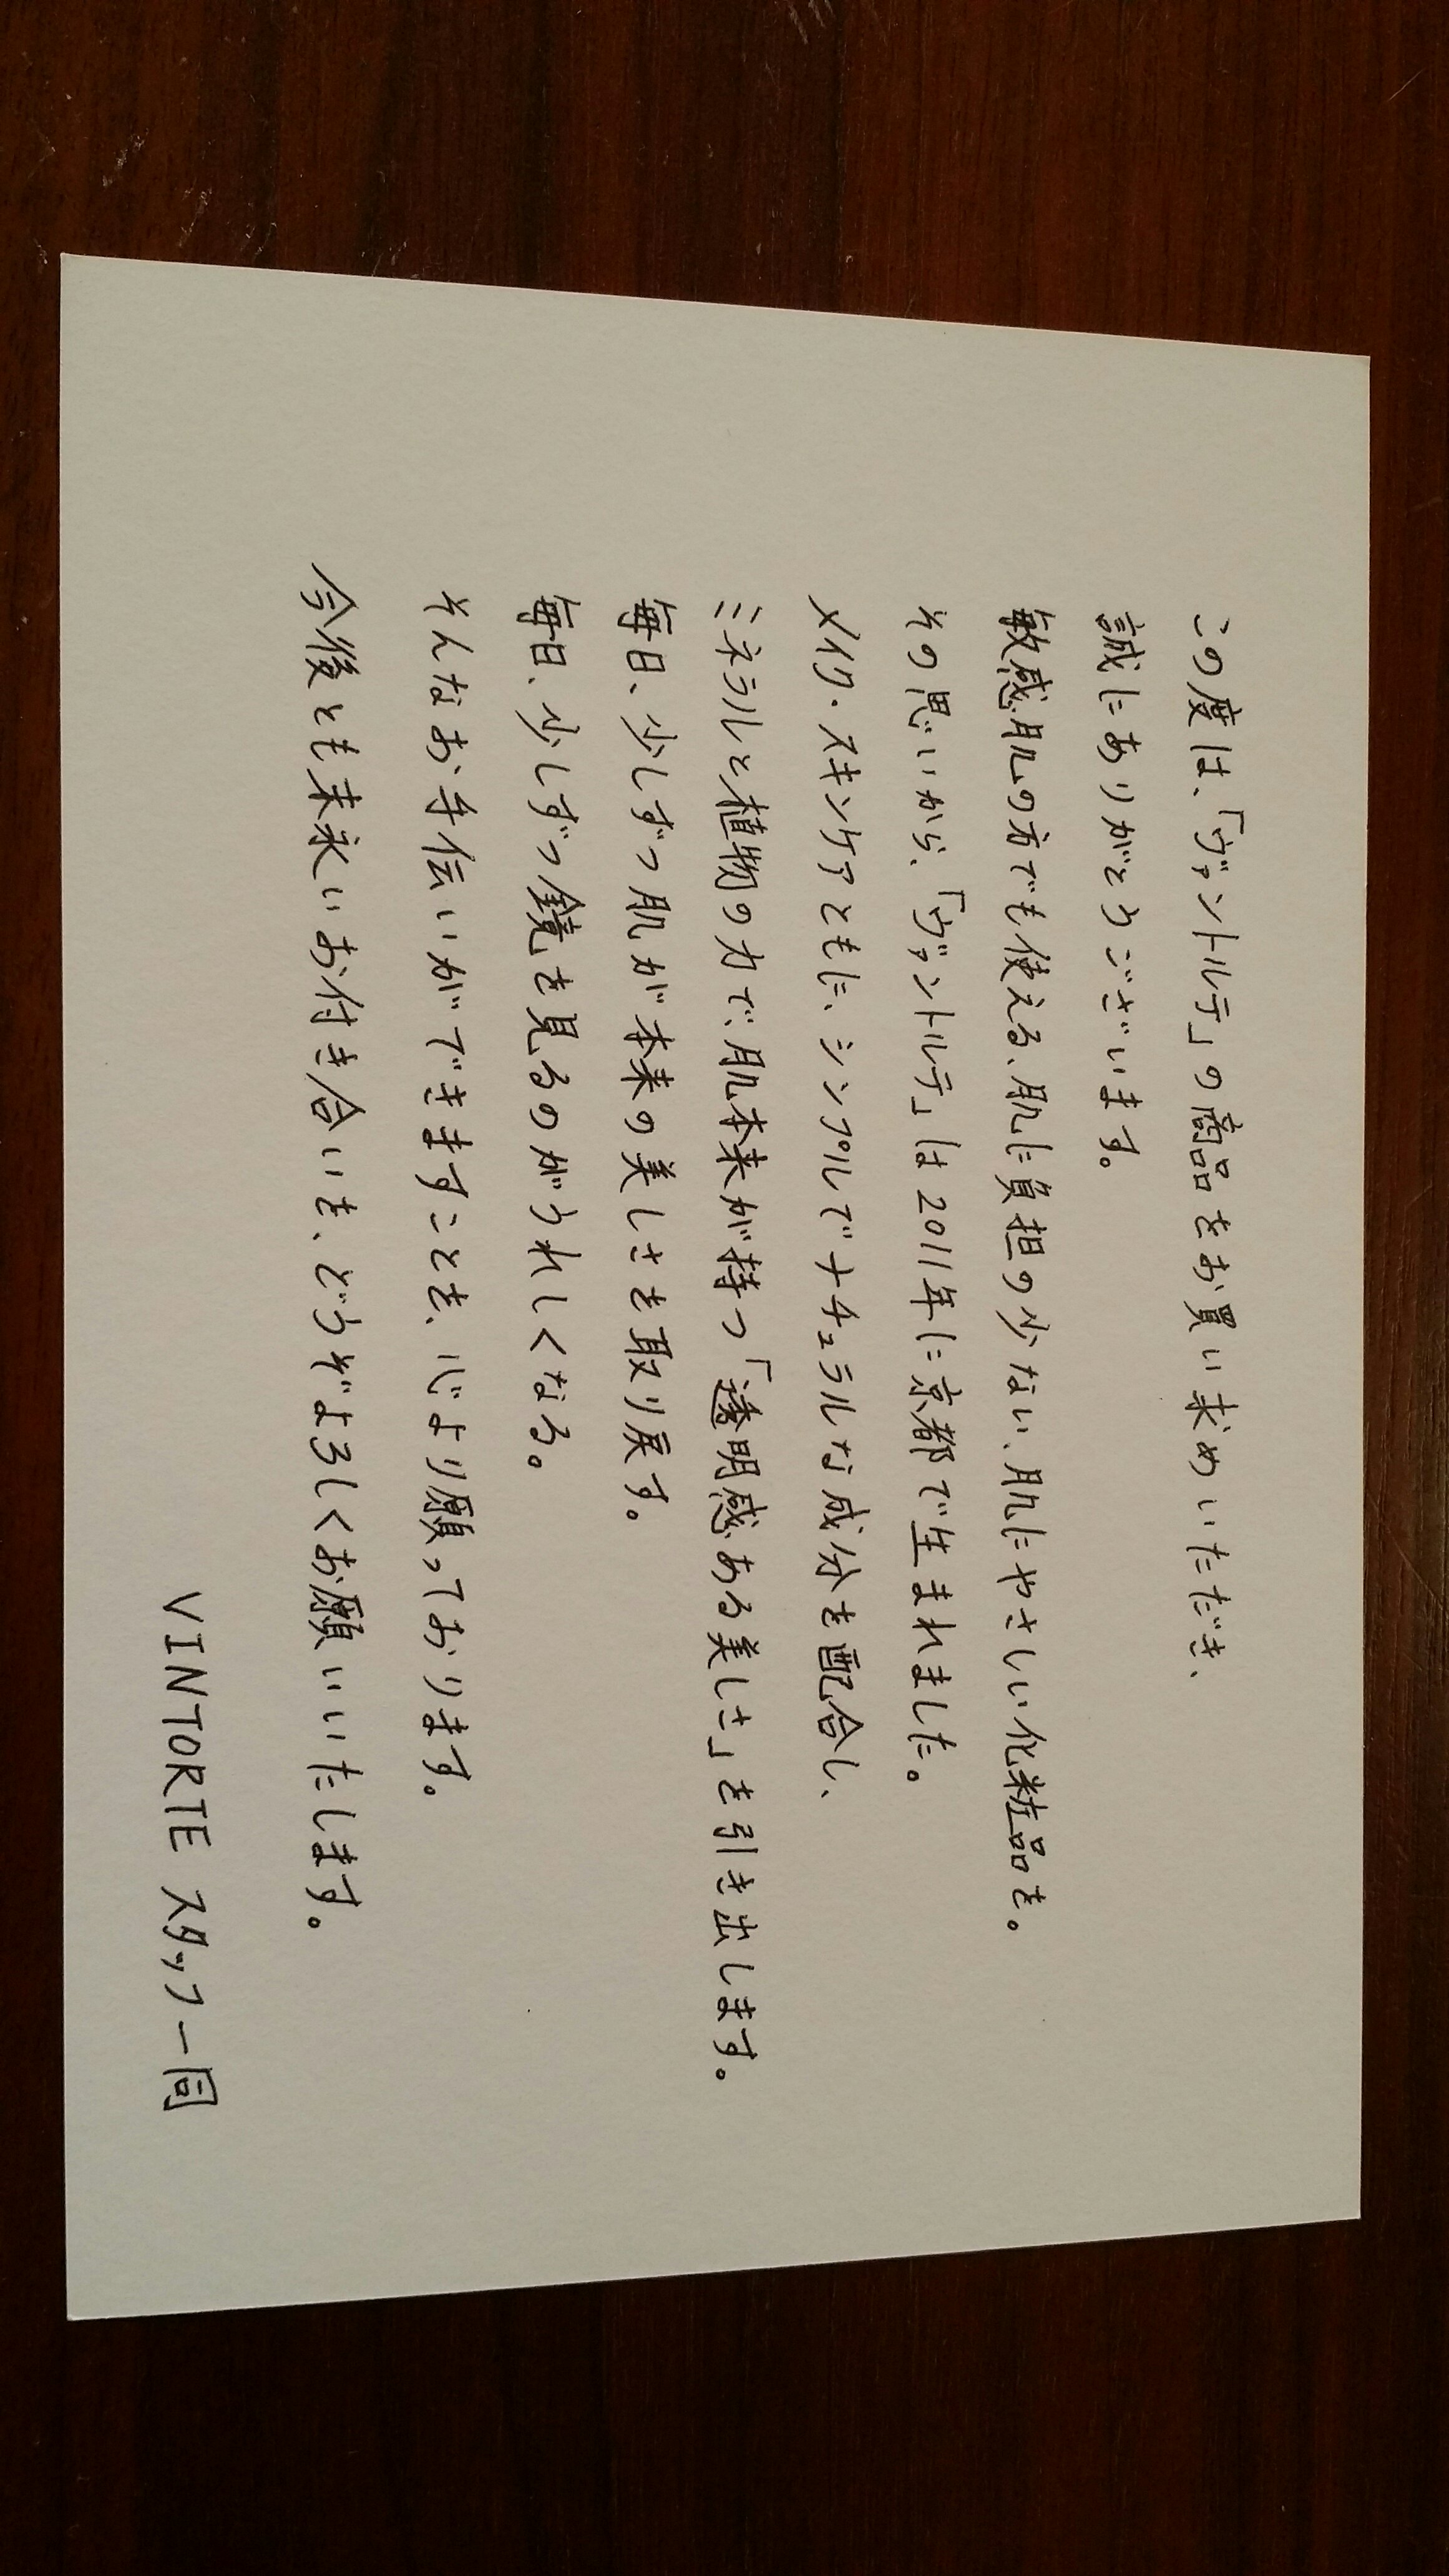 この度は、「ヴァントルテ」の商品をお買い求めいただき、
誠にありがとうございます。
敏感肌の方でも使える、肌に負担の少ない、肌にやさしい化粧品を。
その思いから、「ヴァントルテ」は2011年に京都で生まれました。
メイク・スキンケアともに、シンプルでナチュラルな成分を配合し、
ミネラルと植物の力で、肌本来が持つ「透明感ある美しさ」を引き出します。
毎日、少しずつ肌が本来の美しさを取り戻す。
毎日、少しずつ鏡を見るのがうれしくなる。
そんなお手伝いができますことを、心より願っております。
今後とも末永いお付き合いを、どうぞよろしくお願いいたします。
VINTORTE スタッフ一同